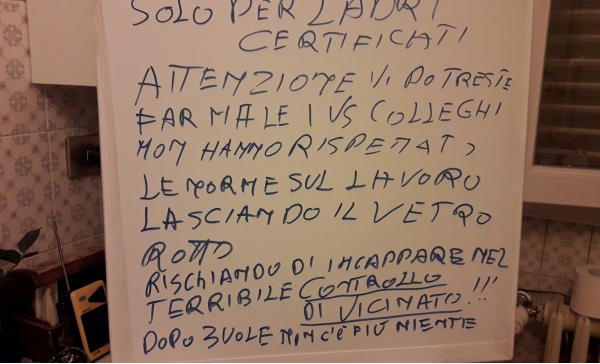 SOLO PER LADRI
CERTIFICATI
ATTENZIONE VI POTRESTE
FAR MALE I VS COLLEGHI
NON HANNO RISPETTATO
LE NORME SUL LAVORO
LASCIANDO IL VETRO
ROTTO
RISCHIANDO DI INCAPPARE NEL
TERRIBILE CONTROLLO
DI VICINATO !!!
DOPO 3 VOLE NON C'È PIÙ NIENTE